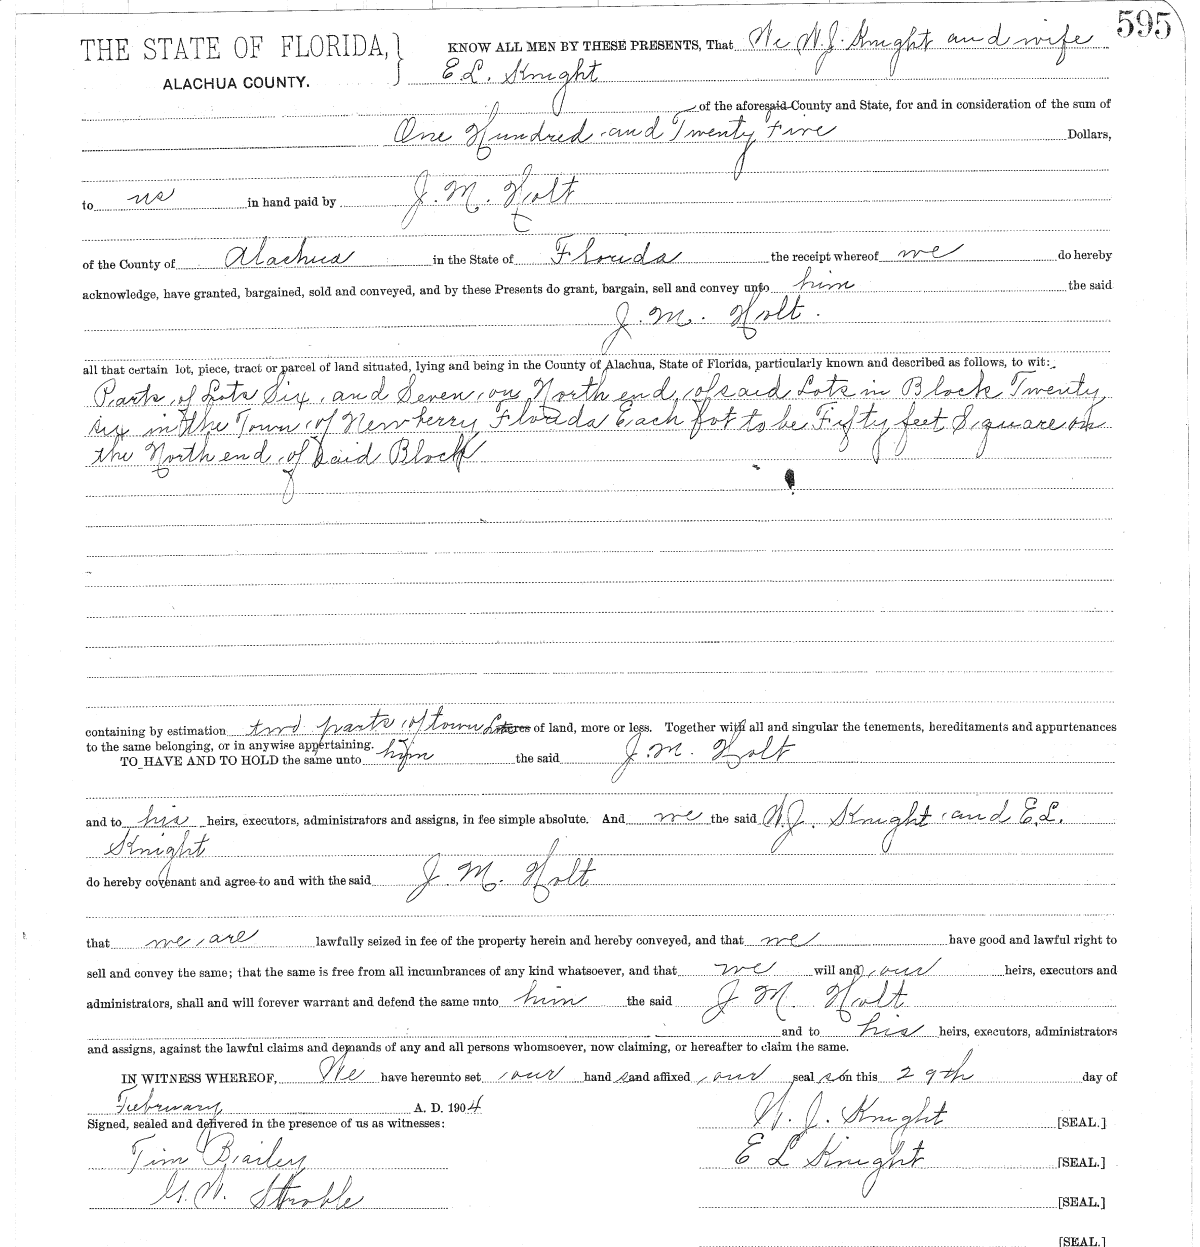 595
THE STATE OF FLORIDA,} KNOW ALL MEN BY THESE PRESENTS, That We W. J. Knight and wife
ALACHUA COUNTY. E L. Knight
of the aforesaid County and State, for and in consideration of the sum of
One Hundred and Twenty Five Dollars,
to us in hand paid by J. M. Holt
of the County of Alachua in the State of Florida the receipt whereof we do hereby
acknowledge, have granted, bargained, sold and conveyed, and by these Presents do grant, bargain, sell and convey unto him the said
J. M. Holt.
all that certain lot, piece, tract or parcel of land situated, lying and being in the County of Alachua, State of Florida, particularly known and described as follows, to wit:
Parts of Lots Six and Seven on North end of said Lots in Block Twenty
six in the Town of Newberry Florida Each Lot to be Fifty feet Square on
the North end of Said Block
containing by estimation two parts of town Lots acres of land, more or less. Together with all and singular the tenements, hereditaments and appurtenances
to the same belonging, or in anywise appertaining.
TO HAVE AND TO HOLD the same unto him the said J. M. Holt
and to his heirs, executors, administrators and assigns, in fee simple absolute. And we the said W. J. Knight and E. L.
Knight
do hereby covenant and agree to and with the said J. M. Holt
that we are lawfully seized in fee of the property herein and hereby conveyed, and that we have good and lawful right to
sell and convey the same; that the same is free from all incumbrances of any kind whatsoever, and that we will and our heirs, executors and
administrators, shall and will forever warrant and defend the same unto him the said J M. Holt
and to his heirs, executors, administrators
and assigns, against the lawful claims and demands of any and all persons whomsoever, now claiming, or hereafter to claim the same.
IN WITNESS WHEREOF, We have hereunto set our hands and affixed our seals on this 29th day of
February A. D. 1904 W. J. Knight [SEAL.]
Signed, sealed and delivered in the presence of us as witnesses:
Tim Bailey E L Knight [SEAL.]
G. W. Struble [SEAL.]
[SEAL.]